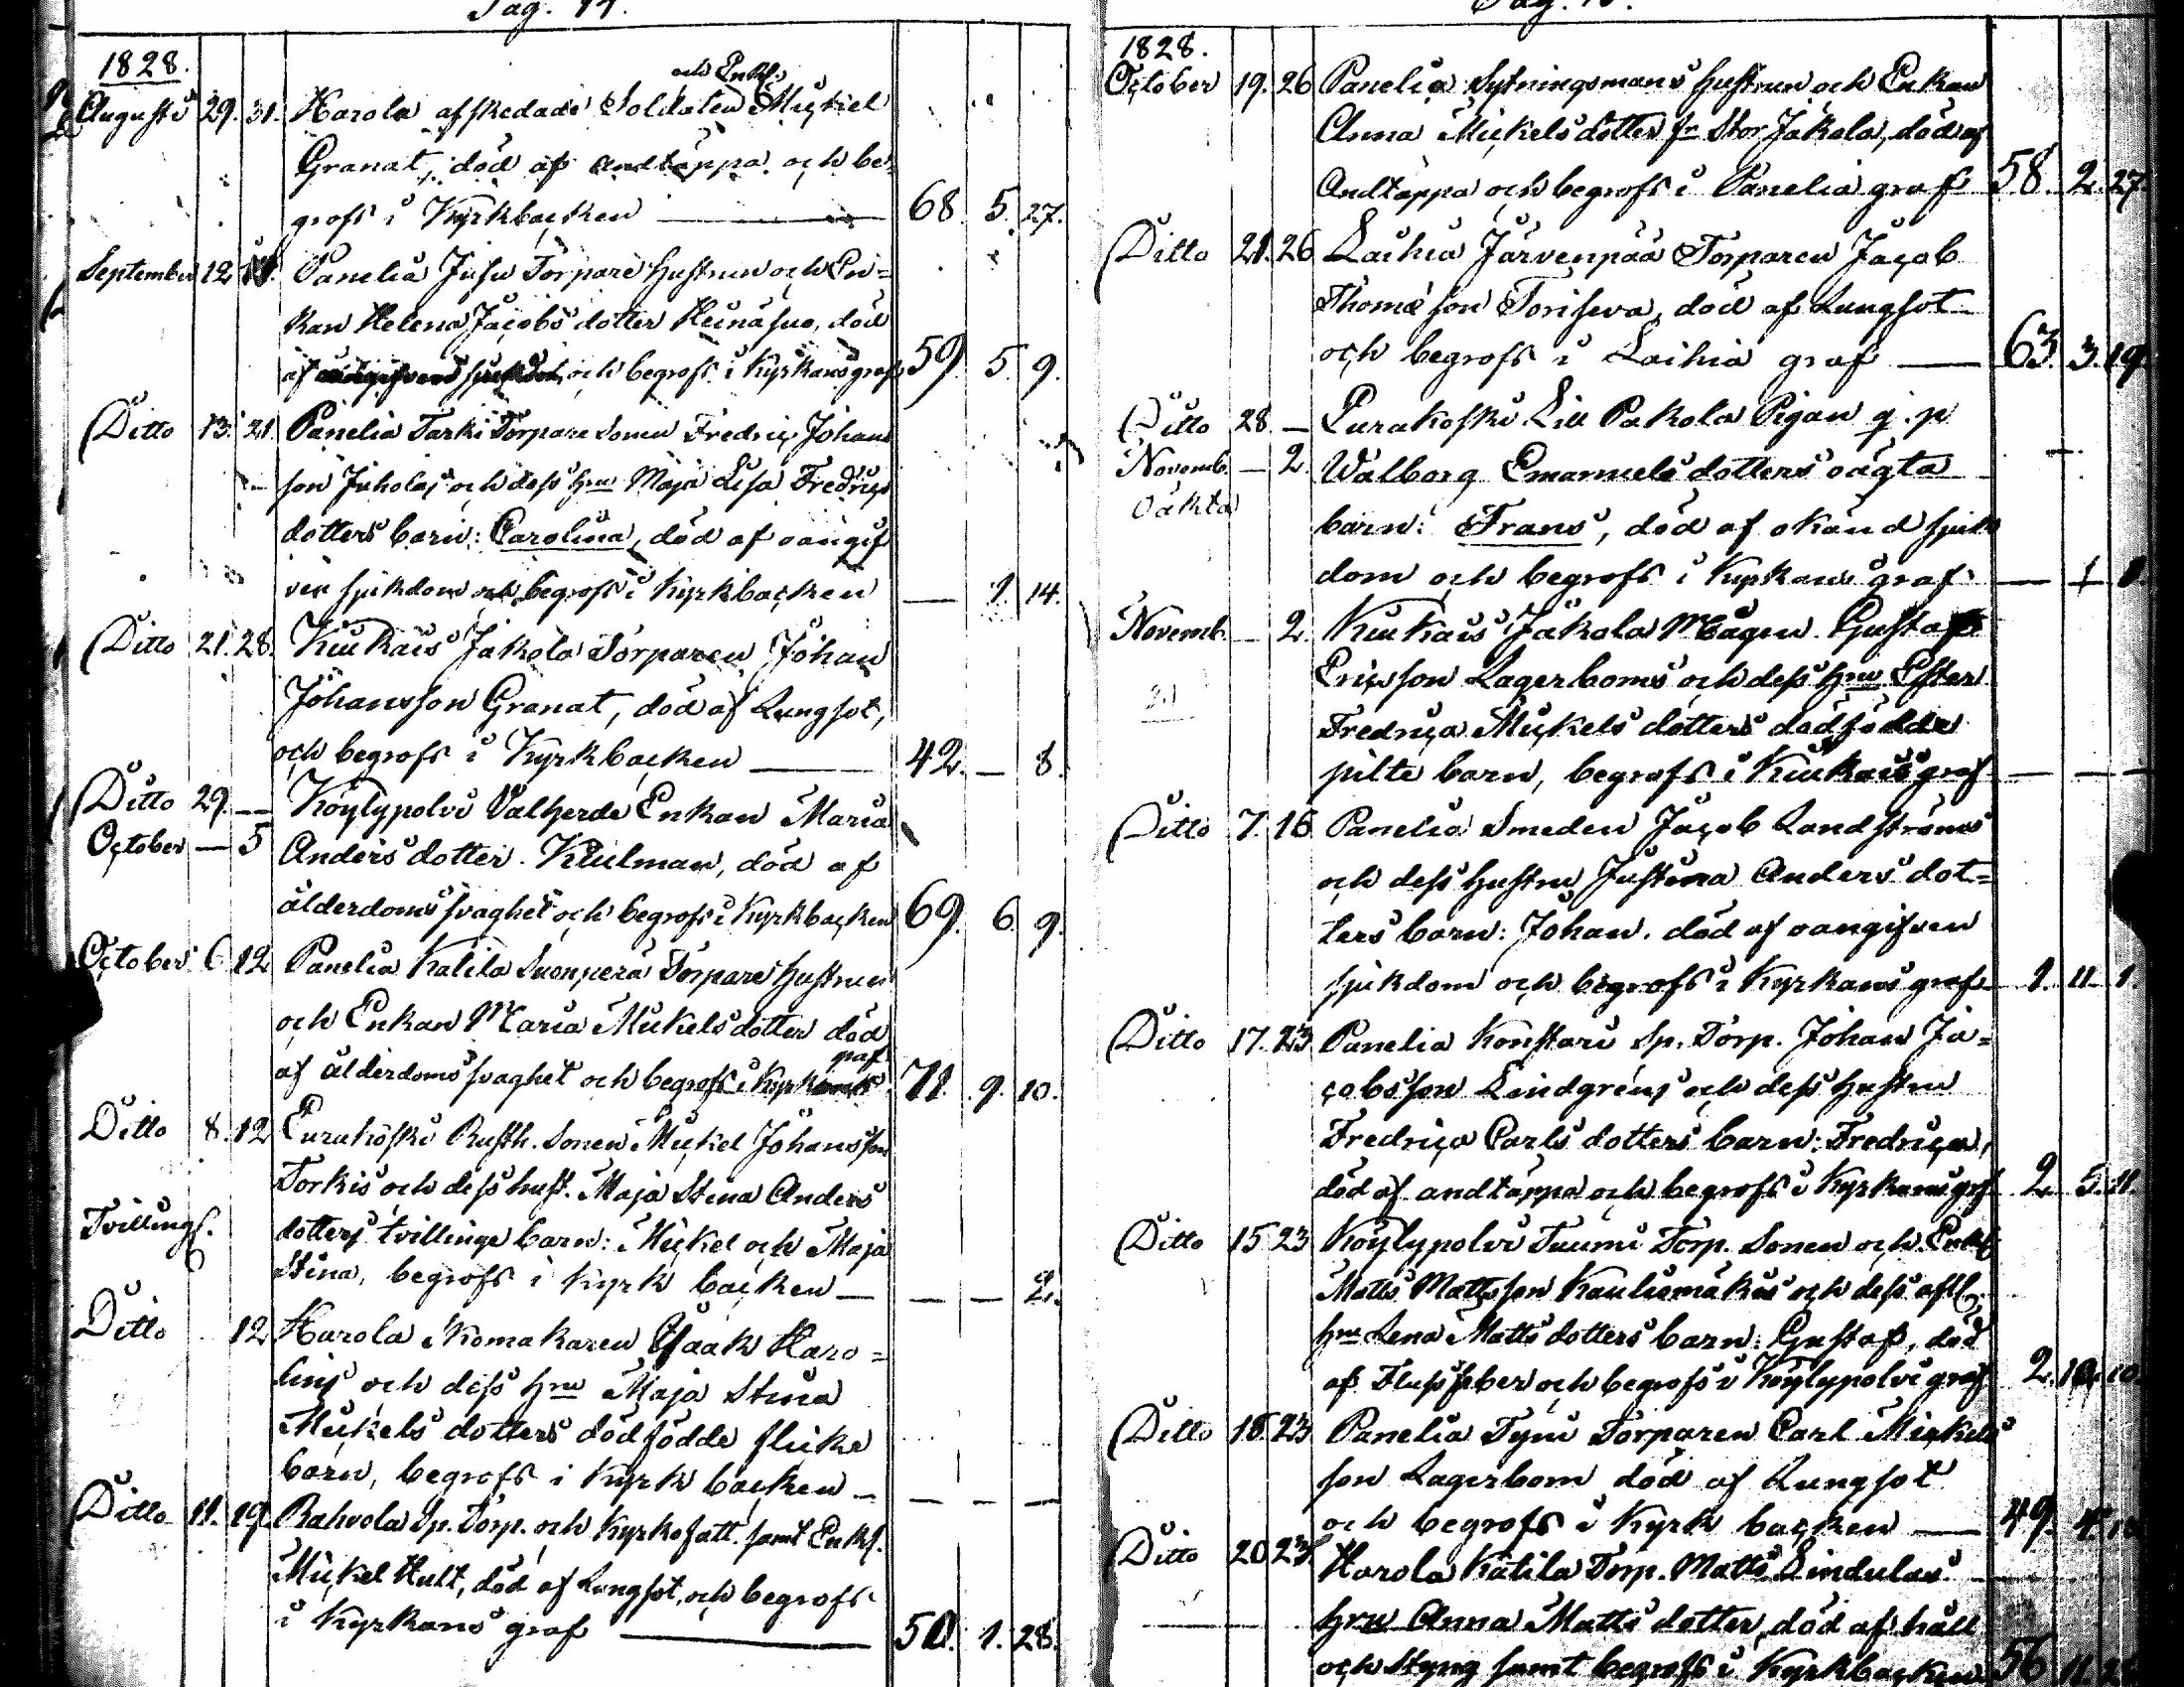 Pag.
1828.
och Enkl.
Augusti 29. 31. Harola afskedade Soldaten Mickel
Granat, död af andtäppa och be-
grofs i Kyrkbacken 68. 5. 27.
September 12 Panelia Jusu Torpare hustrun och En-
kan Helena Jacobs dotter Heinäsuo, död
af och begrofs i Kyrkans graf 59. 5. 9.
Ditto 13. 21 Panelia Tarki Torpare Sonen Fredric Johans
son Juholas och dess hru Maja Lisa Fredrics
dotters barn: Carolina, död af oangif
ven sjukdom och begrofs i Kyrkbacken — 9. 14.
Ditto 21. 28. Kiukais Jakola Torparen Johan
Johansson Granat, död af Lungsot,
och begrofs i Kyrkbacken 42. — 8.
Ditto 29. — Köylypolvi Valherde Enkan Maria
October — 5 Anders dotter Kiulman, död af
ålderdoms svaghet och begrofs i Kyrkbacken 69. 6. 9.
October 6 12 Panelia Katila Suonperä Torpare hustrun
och Enkan Maria Mickels dotter död
graf
af ålderdoms svaghet och begrofs i Kyrkans 71. 9. 10.
Ditto 8. 12 Eurakoski Rusth. Sonen Mickel Johansson
Torkis och dess hust. Maja Stina Anders
Tvilling. dotters tvillinge barn: Mickel och Maja
Stina, begrofs i Kyrk backen — — — 2.
Ditto 12 Harola Skomakaren Isaak Haro=
lins och dess hru Maja Stina
Mickels dotters dödfödde flicke
barn, begrofs i Kyrk backen — — — —
Ditto 11. 19. Rahvola Sp. Torp. och Kyrkofatt. samt Enkl.
Mickel Hult, död af Lungsot, och begrofs
i Kyrkans graf 50. 1. 28.
Pag.
1828.
October 19. 26 Panelia Sytningsmans hustrun och Enkan
Anna Mickels dotter fr Stor Jakola, död af
Andtäppa och begrofs i Panelia graf 58. 2. 27.
Ditto 21. 26 Laihia Järvenpää Torparen Jacob
Thomæ son Toriseva, död af Lungsot
och begrofs i Laihia graf 63. 3. 19.
Ditto 28. — Eurakoski Lill Pakola Pigan q. p
Novemb. — 2. Walborg Emanuels dotters oägta
Oäkta barn: Frans, död af okänd sjuk
dom och begrofs i Kyrkans graf — 1 8.
Novemb. — 2. Kiukais Jakola Mågen Gustaf
Ericsson Lagerboms och dess hru Ester
Fredrica Mickels dotters dödfödde
pilte barn, begrofs i Kiukais graf — — —
Ditto 7. 16 Panelia Smeden Jacob Landströms
och dess hustru Justina Anders dot=
ters barn: Johan, död af oangifven
sjukdom och begrofs i Kyrkans graf 1. 11. 1.
Ditto 17. 23 Panelia Konstari Sp. Torp. Johan Ja=
cobsson Lindgrens och dess hustru
Fredrica Carls dotters barn: Fredrica,
död af andtäppa och begrofs i Kyrkans graf 2. 5. 11.
Ditto 15 23 Köylypolvi Tuumi Torp. Sonen och Enkl
Matts Mattsson Kauliomäkis och dess afl.
hru Lena Matts dotters barn: Gustaf, död
af Flussfeber och begrofs i Köylypolvi graf 2. 10. 10
Ditto 18. 23 Panelia Tyni Torparen Carl Mickels
son Lagerbom död af Lungsot
och begrofs i Kyrk backen 49. 4.
Ditto 20 23. Harola Katila Torp. Matts Lindulas
hru Anna Matts dotter, död af håll
och Styng samt begrofs i Kyrkbacken 56 11.